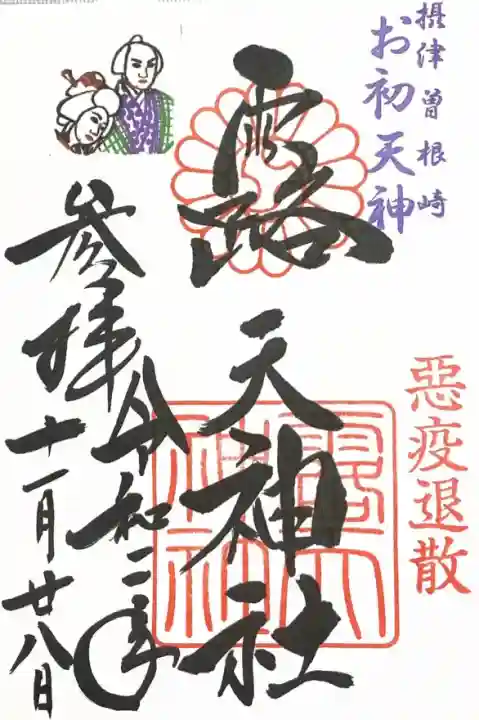 摂津曽根崎
お初天神
露天神社
惡疫退散
令和二年
十一月廿八日
参拝